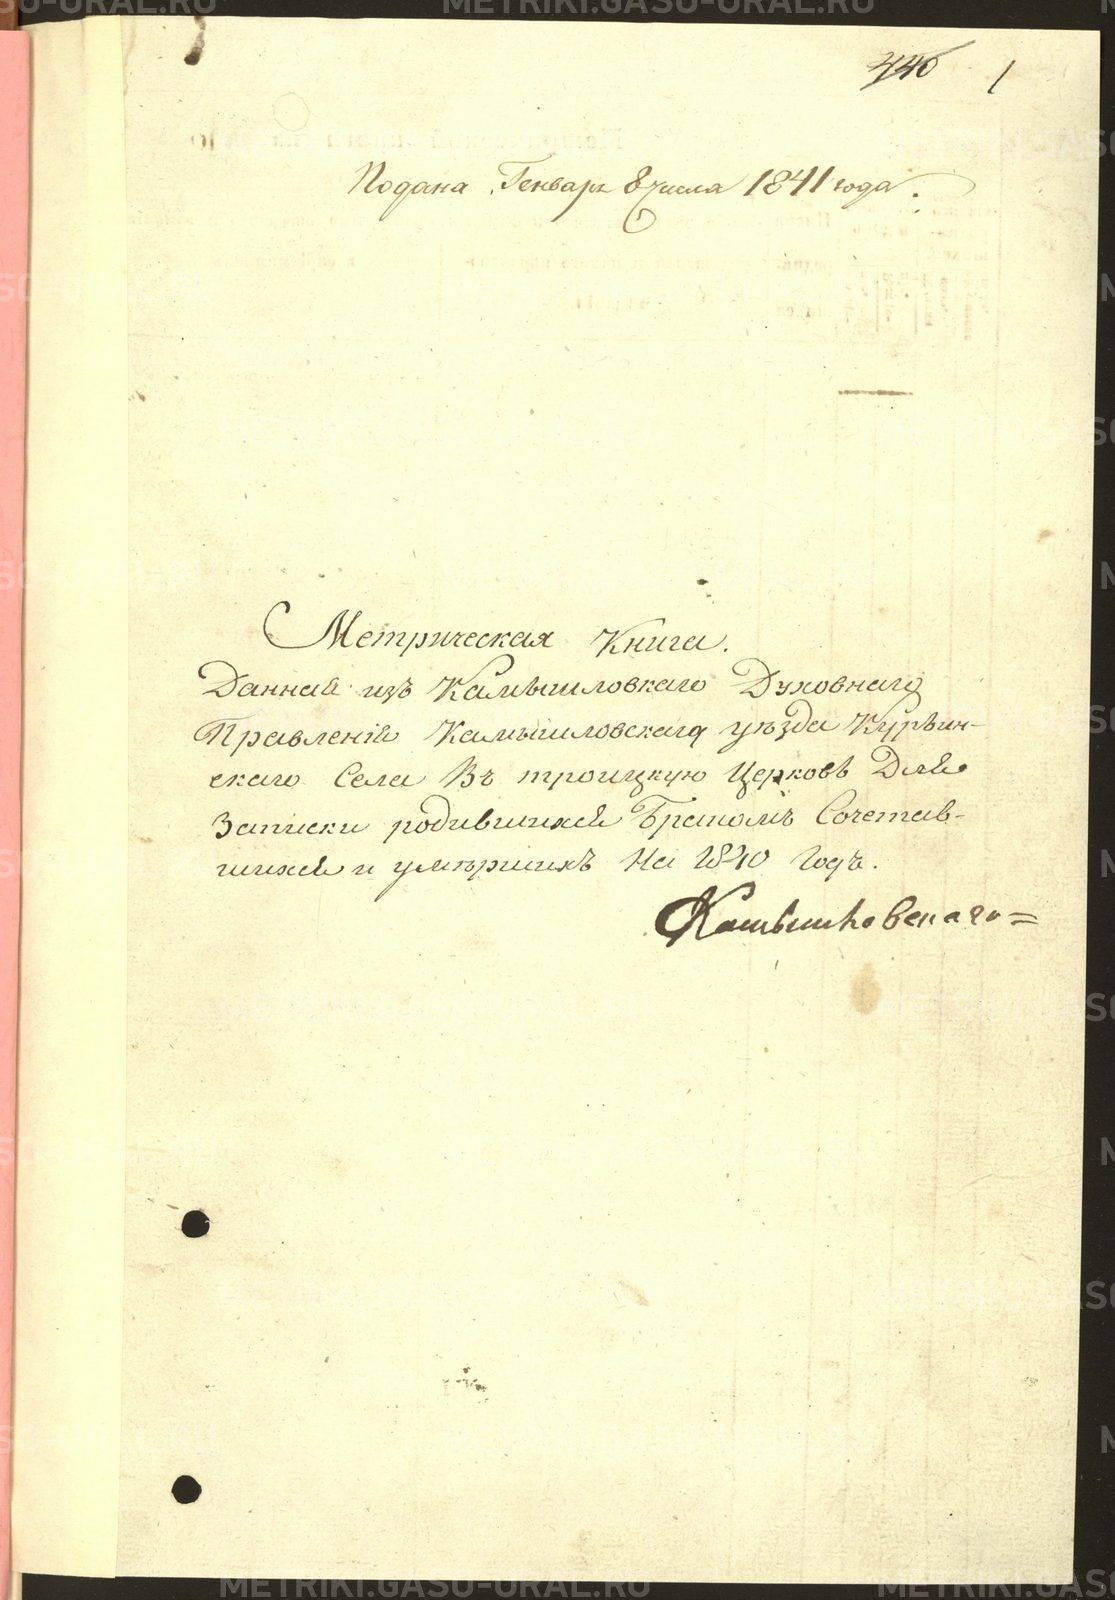 446 1
Подана Генваря 8 числа 1841 года.
Метрическая Книга.
Данная изъ Камышловкаго Духовнаго
Правленія Камышловскаго уѣзда Курьин-
скаго Села Въ троицкую Церковь Для
Записки родившихся Бракомъ Сочетав-
шихся и умѣршихъ На 1840 Годъ.
Камышловскаго=
METRIKI.GASU-URAL.RU